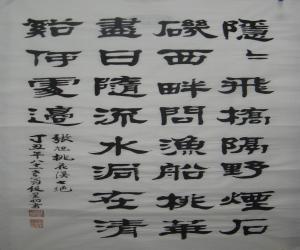 隱〻飛橋隔野煙石
磯西畔問漁船桃華
盡日隨流水洞在清
谿何處邊
張旭桃花溪七絕
丁丑年八十